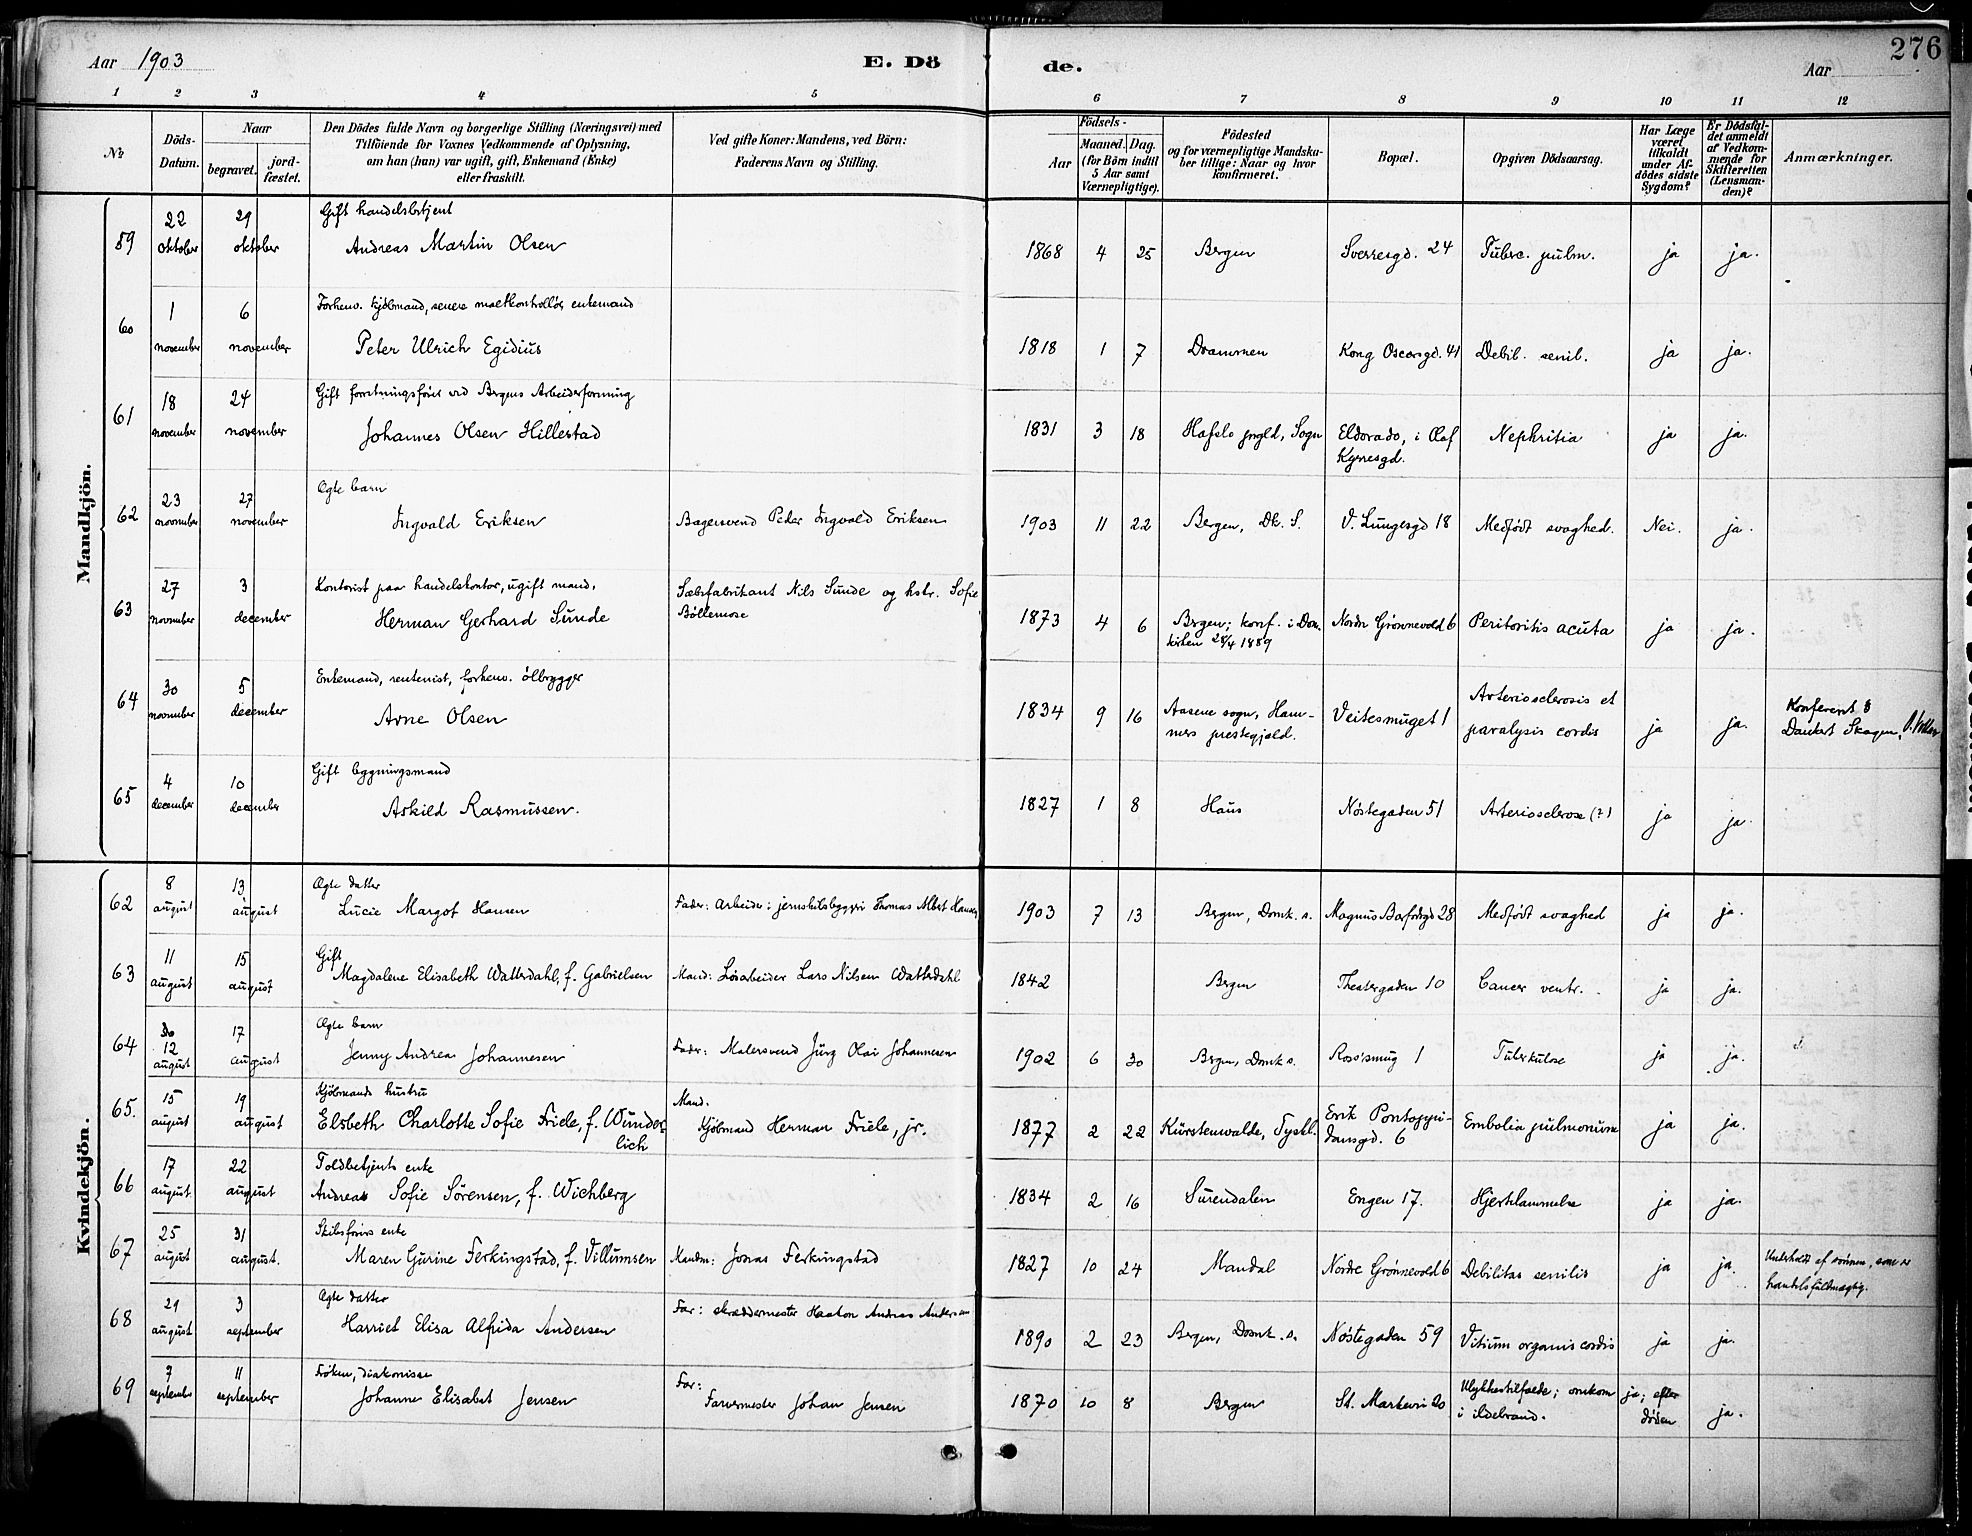 276
Aar 1903
E. Dö
de.
Aar
1 2 3 4 5 6 7 8 9 10 11 12
No
Döds-Datum.
Naar
begravet.
jord-fæstet.
Den Dödes fulde Navn og borgerlige Stilling (Næringsvei) med
Tilföiende for Voxnes Vedkommende af Oplysning,
om han (hun) var ugift, gift, Enkemand (Enke)
eller fraskilt.
Ved gifte Koner: Mandens, ved Börn:
Faderens Navn og Stilling.
Födsels-
Aar
Maaned. Dag.
(for Börn indtil
5 Aar samt
Værnepligtige).
Födested
og for værnepligtige Mandska-
ber tillige: Naar og hvor
konfirmeret.
Bopæl.
Opgiven Dödsaarsag.
Har Læge
været
tilkaldt
under Af-
dödes sidste
Sygdom?
Er Dödsfal-
det anmeldt
af Vedkom-
mende for
Skifteretten
(Lensman-
den)?
Anmærkninger.
Mandkjön.
59 22 oktober 29 oktober Gift handelsbetjent
Andreas Martin Olsen 1868 4 25 Bergen Sverresgd. 24 Tuberc. pulm. ja ja.
60 1 november 6 november Forhenv. kjøbmand, senere maltkontrollør, enkemand
Peter Ulrich Egidius 1818 1 7 Drammen Kong Oscarsgd. 41 Debil. senil. ja ja.
61 18 november 24 november Gift forretningsfører ved Bergens Arbeiderforening
Johannes Olsen Hillestad 1831 3 18 Hafslo prgld, Sogn Eldorado, i Olaf
Kyrresgd. Nephritis ja ja.
62 23 november 27 november Ægte barn
Ingvald Eriksen Bagersvend Peder Ingvald Eriksen 1903 11 22 Bergen, Dk. S. V. Lungesgd 18 Medfødt svaghed. Nei. ja.
63 27 november 3 december Kontorist paa handelskontor, ugift mand,
Herman Gerhard Sunde Sæbefabrikant Nils Sunde og hstr. Sofie
Böllemose 1873 4 6 Bergen; konf. i Dom-
kirken 28/4 1889 Nordre Grønnevold 6 Peritonitis acuta ja ja.
64 30 november 5 december Enkemand, rentenist, forhenv. ølbrygger
Arne Olsen 1834 9 16 Aasene sogn, Ham-
mers prestegjæld. Veitesmuget 1 Arteriosclerosis et
paralysis cordis ja ja. Konferent:
Dankert Skagen,
65 4 december 10 december Gift bygningsmand
Askild Rasmussen. 1827 1 8 Haus Nøstegaden 51 Arteriosclerose (?) ja ja.
Kvindekjön.
62 8 august 13 august Ægte datter
Lucie Margot Hansen Fader: Arbeider i jernskibsbyggeri Thomas Albert Hansen 1903 7 13 Bergen, Domk. s. Magnus Barfodsgd 28 Medfødt svaghed ja ja.
63 11 august 15 august Gift
Magdalene Elisabeth Watterdahl, f. Gabrielsen Mand: Løsarbeider Lars Nilsen Watterdahl 1842 Bergen Theatergaden 10 Cancer ventr. ja ja.
64 12 august 17 august Ægte barn
Jenny Andrea Johannesen Fader: Malersvend Jürg Olai Johannesen 1902 6 30 Bergen, Domk s. Rosesmug 1 Tuberkulose ja ja.
65. 15 august 19 august Kjøbmands hustru
Elsbeth Charlotte Sofie Friele, f. Wunder-
lich Mand:
Kjøbmand Herman Friele, jr. 1877 2 22 Fürstenwalde, Tyskl. Erik Pontoppi-
dansgd. 6 Embolia pulmonum ja ja.
66 17 august 22 august Toldbetjents enke
Andrea Sofie Sörensen, f. Wichberg 1834 2 16 Surendalen Engen 17. Hjertelammelse ja ja.
67 25 august 31 august. Skibsførers enke
Maren Gurine Ferkingstad, f. Villumsen Manden: Jonas Ferkingstad 1827 10 24 Mandal Nordre Grønnevold 6 Debilitas senilis ja ja. Underholdt af sønnen, som er
handelsfuldmægtig.
68 29 august 3 september Ægte datter
Harriet Elisa Alfrida Andersen Far: skræddermester Haakon Andreas Andersen 1890 2 23 Bergen, Domk. s. Nøstegaden 59 Vitium organis cordis ja ja.
69 7 september 11 september Frøken, diakonisse
Johanne Elisabet Jensen Far:
Farvermester Johan Jensen 1870 10 8 Bergen St. Markevei 20 Ulykkestilfælde; omkom
i ildebrand. ja; efter
døden ja.